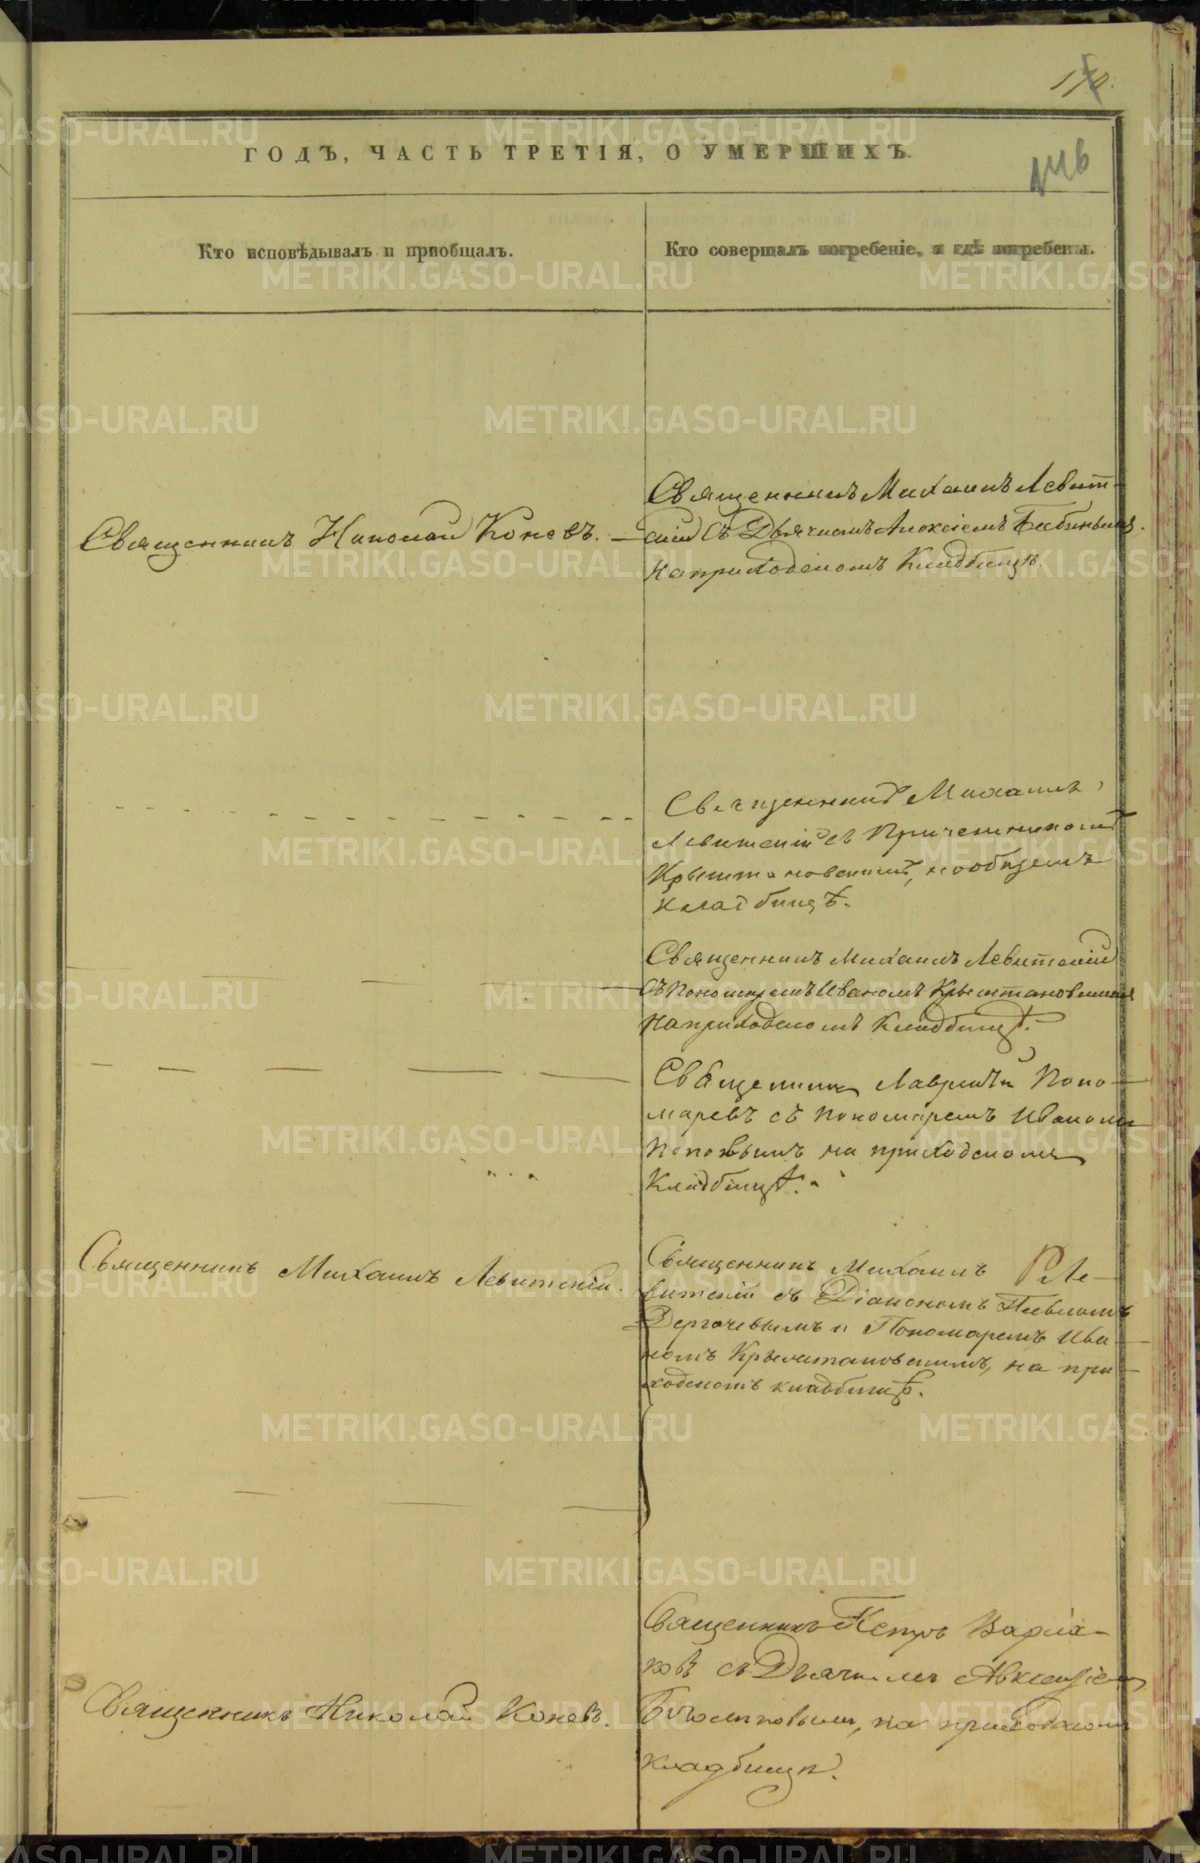 ГОДЪ, ЧАСТЬ ТРЕТІЯ, О УМЕРШИХЪ
146
Кто исповѣдывалъ и пріобщалъ.
Кто совершалъ погребеніе, и гдѣ погребены.
Священникъ Николай Коневъ.
Священникъ Михаилъ Левит-
скій съ Дьячкомъ Алексіемъ
на приходскомъ Кладбищѣ.
Священникъ Михаилъ
Левитскій съ Причетникомъ
Крыштановскимъ, на общемъ
Кладбищѣ.
Священникъ Михаилъ Левитскій
съ Пономаремъ Иваномъ Крыштановскимъ
на приходскомъ Кладбищѣ.
Священникъ Лаврентій Поно-
маревъ съ Пономаремъ Иваномъ
Поповымъ на приходскомъ
Кладбищѣ.
Священникъ Михаилъ Левитскій.
Священникъ Михаилъ Ле-
витскій съ Діакономъ Павломъ
Дергачевымъ и Пономаремъ Ива-
номъ Крыштановскимъ, на при-
ходскомъ кладбищѣ.
Священникъ Николай Коневъ.
Священникъ Петръ
съ Дьячкомъ Авксентіемъ
Богомоловымъ, на приходскомъ
кладбищѣ.
METRIKI.GASO-URAL.RU